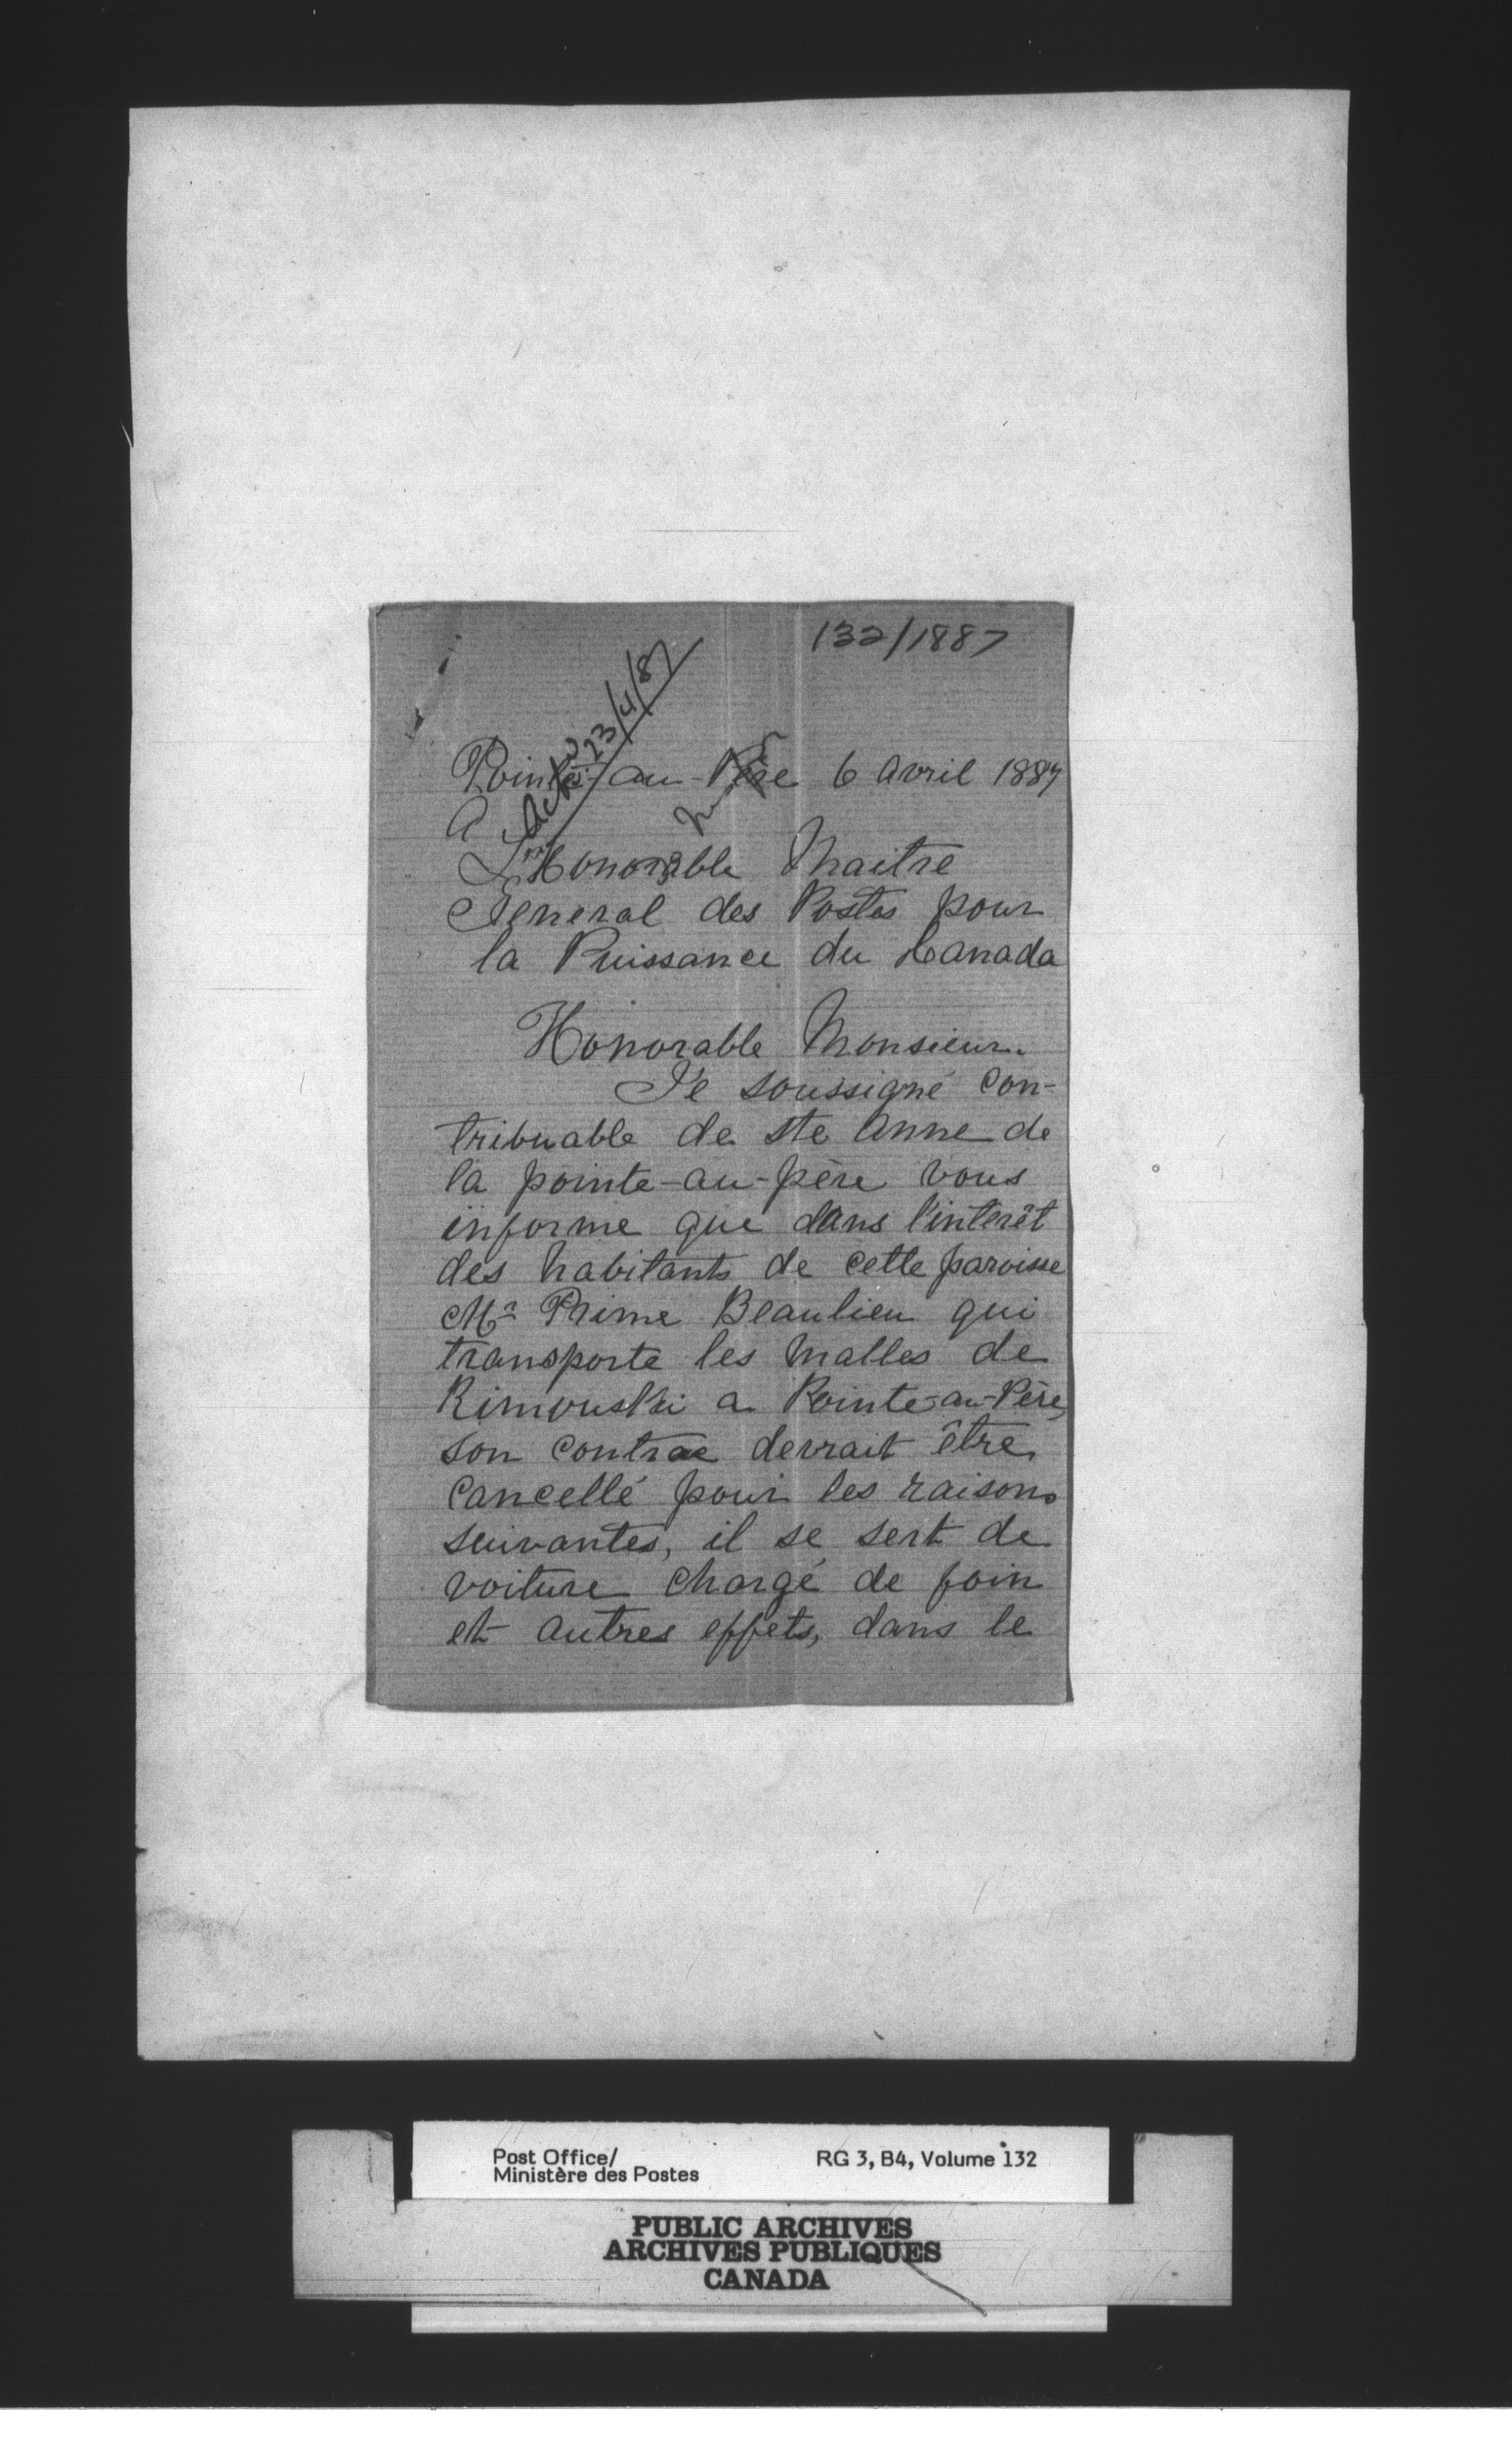 132/1887
23/4/87
Pointe-au-Père 6 avril 1887
A
L'Honorable Maitre
General des Postes pour
la Puissance du Canada
Honorable Monsieur.
Je soussigné con-
tribuable de ste Anne de
la pointe-au-père vous
informe que dans l'interêt
des habitants de cette paroisse
Mr Prime Beaulieu qui
transporte les malles de
Rimouski a Pointe-au-Père,
son contrac devrait être
cancellé pour les raisons
suivantes, il se sert de
voiture chargé de foin
et autres effets, dans le
Post Office/
Ministère des Postes
RG 3, B4, Volume 132
PUBLIC ARCHIVES
ARCHIVES PUBLIQUES
CANADA